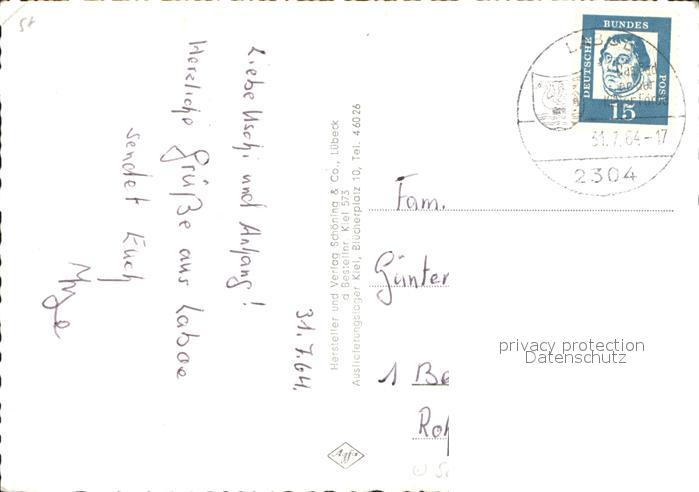 31.7.64.
Liebe Uschi und Anhang!
Herzliche Grüße aus Laboe
sendet Euch
Hersteller und Verlag Schöning & Co., Lübeck
a Bestellnr. Kiel 573
Auslieferungslager Kiel, Blücherplatz 10, Tel. 4 60 26
Agfa
DEUTSCHE BUNDES POST
15
31.7.64-17
2304
Fam.
Günter
1 Be
Roh
privacy protection
Datenschutz